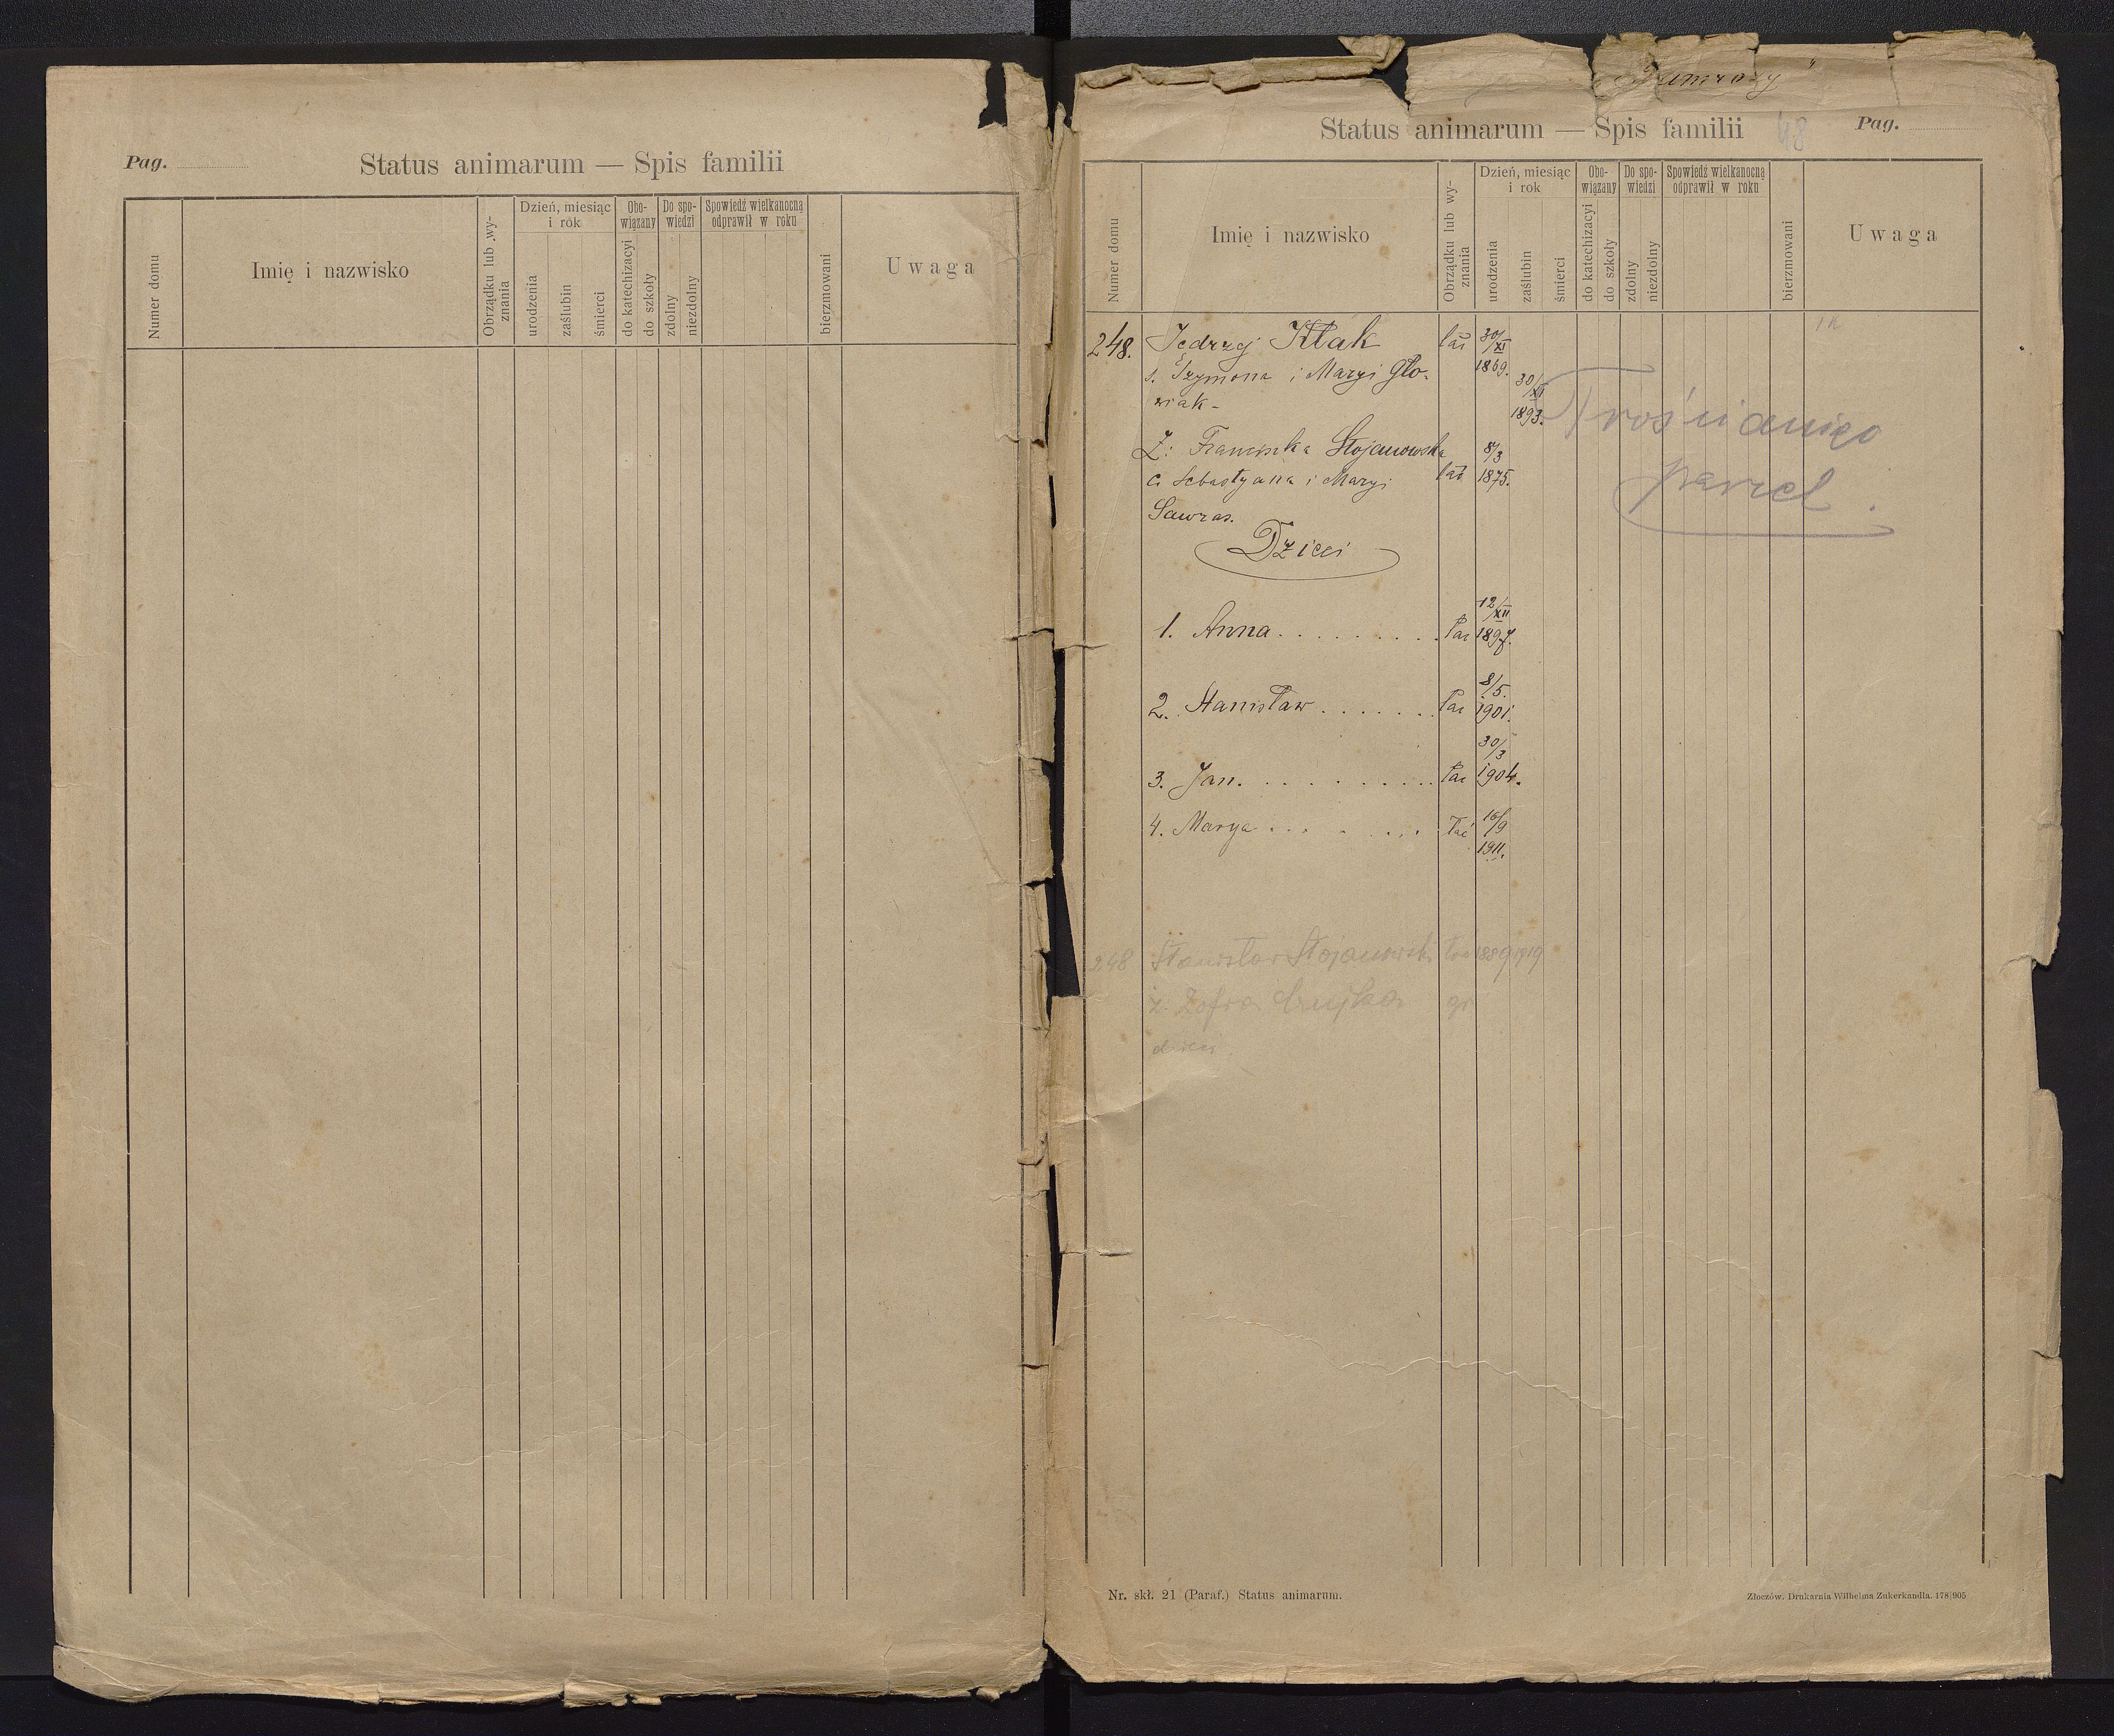 Pag.
Status animarum — Spis familii
Numer domu
Imię i nazwisko
Obrządku lub wy-
znania
Dzień, miesiąc
i rok
urodzenia
zaślubin
śmierci
Obo-
wiązany
do katechizacyi
do szkoły
Do spo-
wiedzi
zdolny
niezdolny
Spowiedź wielkanocną
odprawił w roku
bierzmowani
Uwaga
Status animarum — Spis familii
48
Pag.
Numer domu
Imię i nazwisko
Obrządku lub wy-
znania
Dzień, miesiąc
i rok
urodzenia
zaślubin
śmierci
Obo-
wiązany
do katechizacyi
do szkoły
Do spo-
wiedzi
zdolny
niezdolny
Spowiedź wielkanocną
odprawił w roku
bierzmowani
Uwaga
248. Jędrzej Kłak łać 30/XI
1869.
s. Szymona i Maryi Gło-
wiak-
30/XI
1893.
Ż: Franciszka Stojanowska 8/3
c. Sebastyana i Maryi łać 1875.
Sawras.
Trościaniec
parcel.
Dzieci
1. Anna . . . . . . . . . łać 12/XII
1897.
2. Stanisław . . . . . . . łać 8/5.
1901.
3. Jan. . . . . . . . . łać 30/3
1904.
4. Marya . . . . . . . łać 16/9
1911.
248 Stanisław Stojanowski łać 1889 1919
ż. Zofia gr
dzieci:
Nr. skł. 21 (Paraf.) Status animarum.
Złoczów. Drukarnia Wilhelma Zukerkandla. 178|905